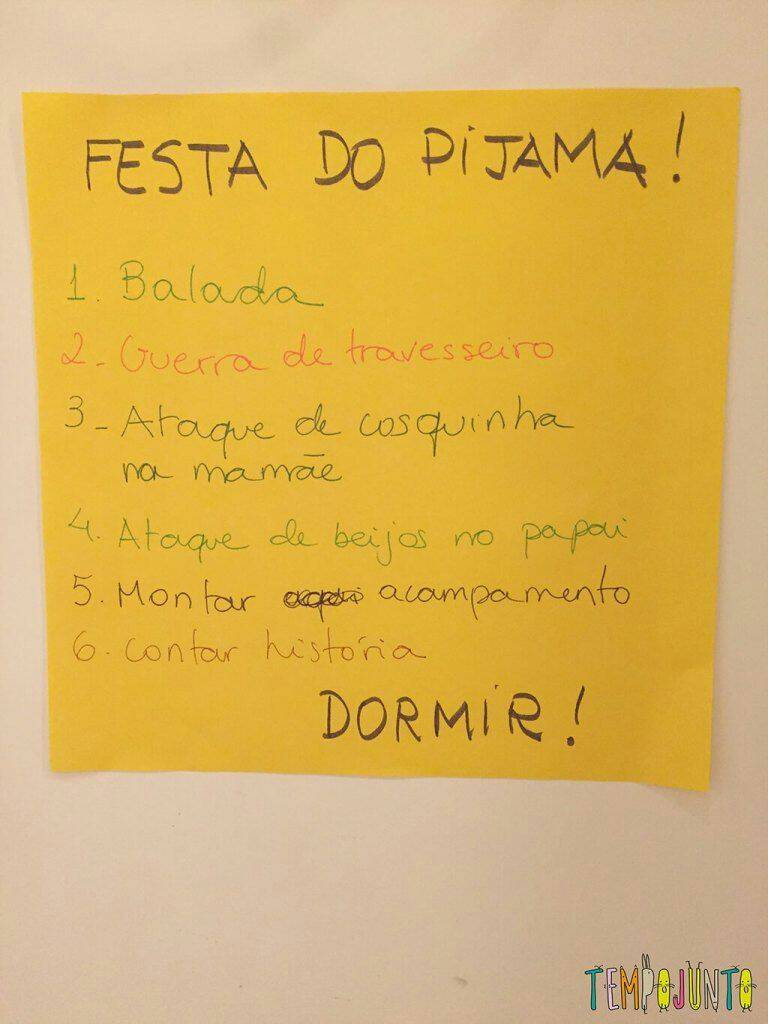 FESTA DO PIJAMA!
1. Balada
2- Guerra de travesseiro
3- Ataque de cosquinha
na mamãe
4. Ataque de beijos no papai
5. Montar acampamento
6. contar história
DORMIR!
TEMPOJUNTO